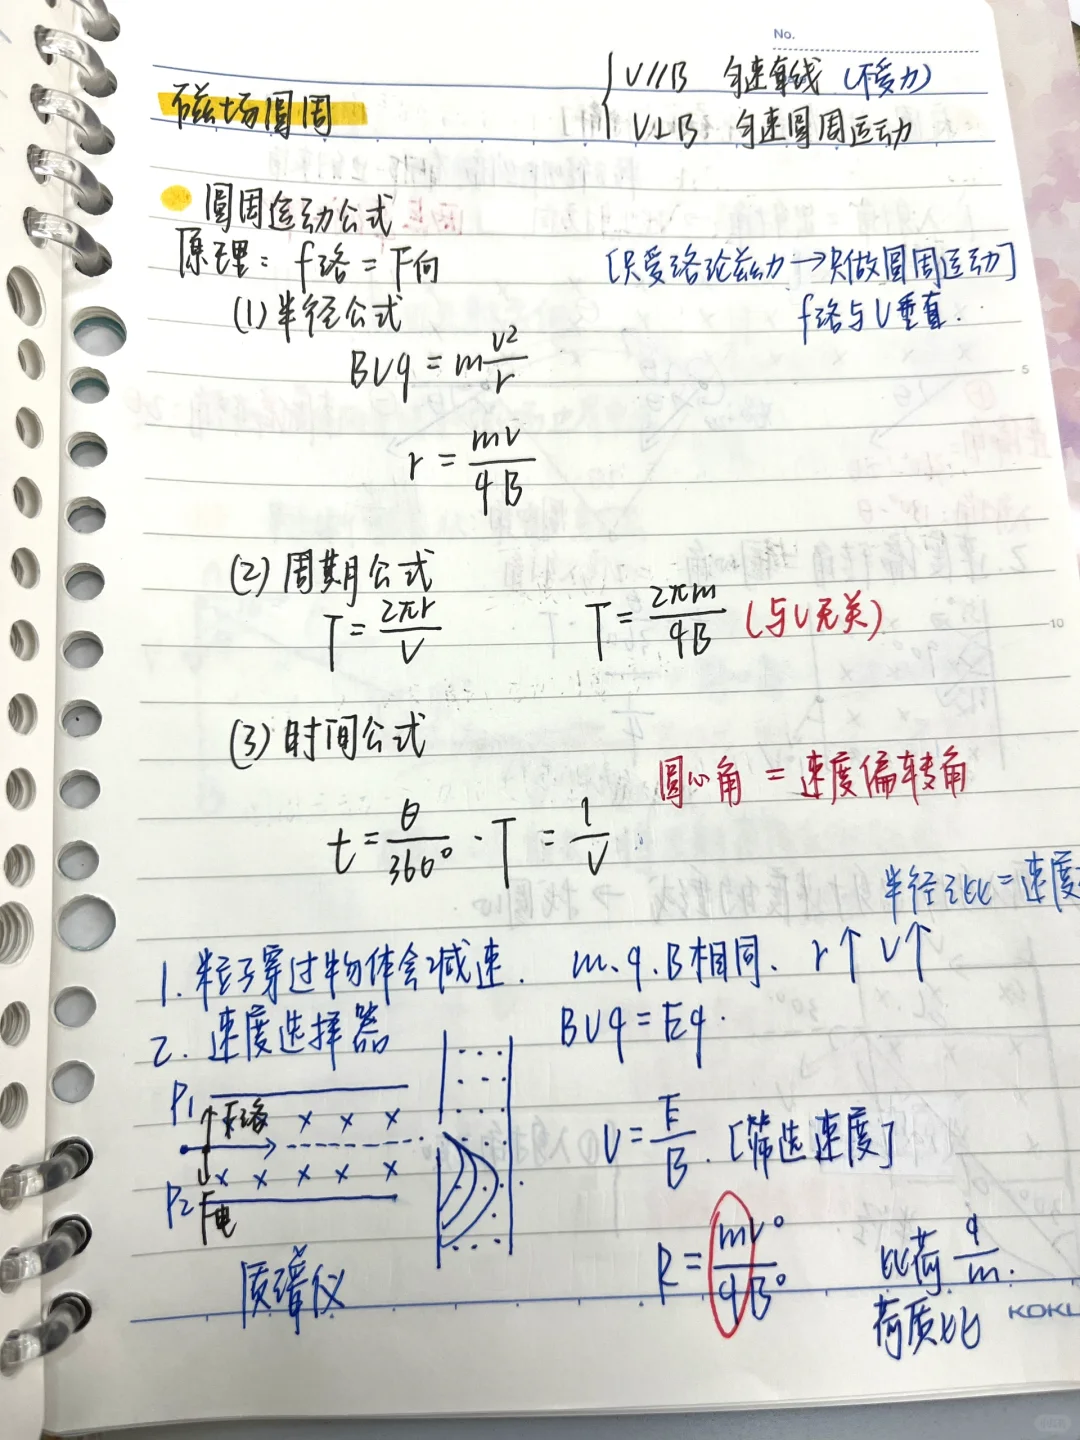 No.
V∥B 匀速直线（不受力）
磁场圆周
V⊥B 匀速圆周运动
圆周运动公式
原理：f洛=F向 [只受洛伦兹力→只做圆周运动]
(1)半径公式 f洛与V垂直.
BVq=m\frac{V²}{r}
5
r=\frac{mV}{qB}
(2)周期公式
T=\frac{2πr}{V} T=\frac{2πm}{qB} (与V无关)
10
(3)时间公式
圆心角=速度偏转角
t=\frac{θ}{360°}·T=\frac{l}{V}
半径之比=速度
1.粒子穿过物体会减速. m.q.B相同. r↑ V↑
2.速度选择器 BVq=Eq.
P1
F洛 × × ×
V=\frac{E}{B}.[筛选速度]
× × × × ×
P2
F电
R=\frac{mV°}{qB°} 比荷\frac{q}{m}.
质谱仪
荷质比
KOKU